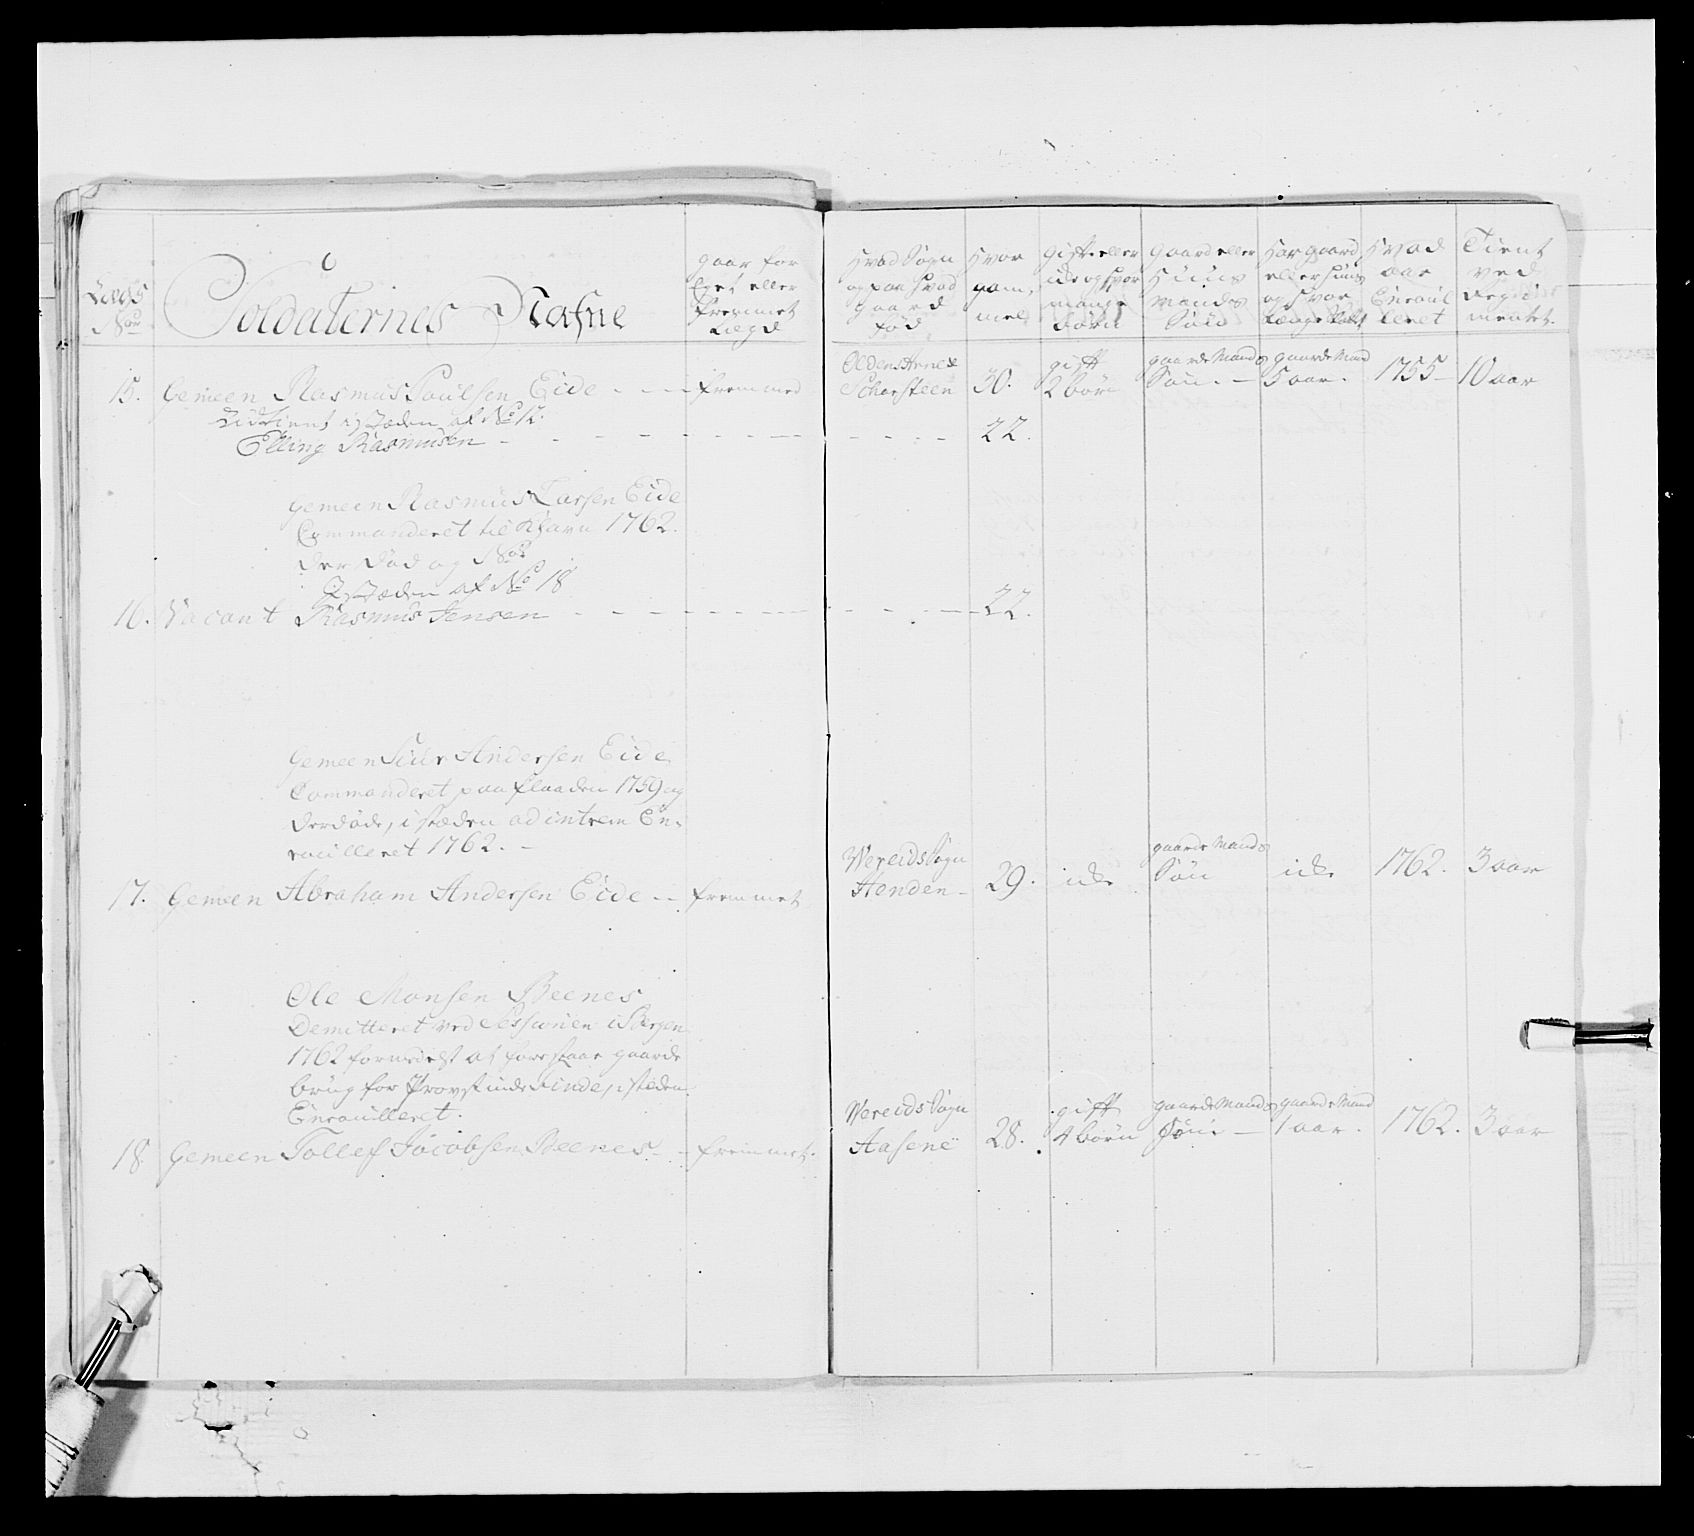 Lægs No
Soldaternes Nafne
gaar for Eget eller fremmet Lægd
Hvad Sogn og paa hvad gaard fød
Hvor gammel
Gift eller ide og hvor mange børn
Gaard eller Huus Mandes Søn
Har gaard eller Huus og hvor
Hvad aar Enroulleret
Tient ved Regimentet
15. Gemeen Rasmus Poulsen Eide - - - fremmed Olden 30. gift 2 børn gaarde Mands Søn. - gaarde Mand 5 aar. 1755 - 10 aar
Udtient i Stæden af No 12.
Elling Rasmusen - - - - - - 22.
Gemeen Rasmus Larsen Eide
Commanderet til Khavn 1762.
der død og
I Stæden af No 18
16. Vacant Rasmus Jensen - - - - - - 22.
Gemeen Siur Andersen Eide
Commanderet paa flaaden 1759 og
der døde, i stæden ad intrem En-
roulleret 1762. -
17. Gemeen Abraham Andersen Eide - - fremmet Wereids Sogn Henden - 29. ide gaarde Mands Søn ide 1762. 3 aar
Ole Monsen Beenes
Demitteret ved Sessionen i Bergen
1762 formedelst at forestaae gaarde
brug for Provstinde, i stæden
Enroulleret.
18. Gemeen Tollef Jacobsen Beenes - - fremmet. Wereids Sogn Aasene 28. gift 4 børn gaarde Mands Søn - gaarde Mand 1 aar. 1762. 3 aar